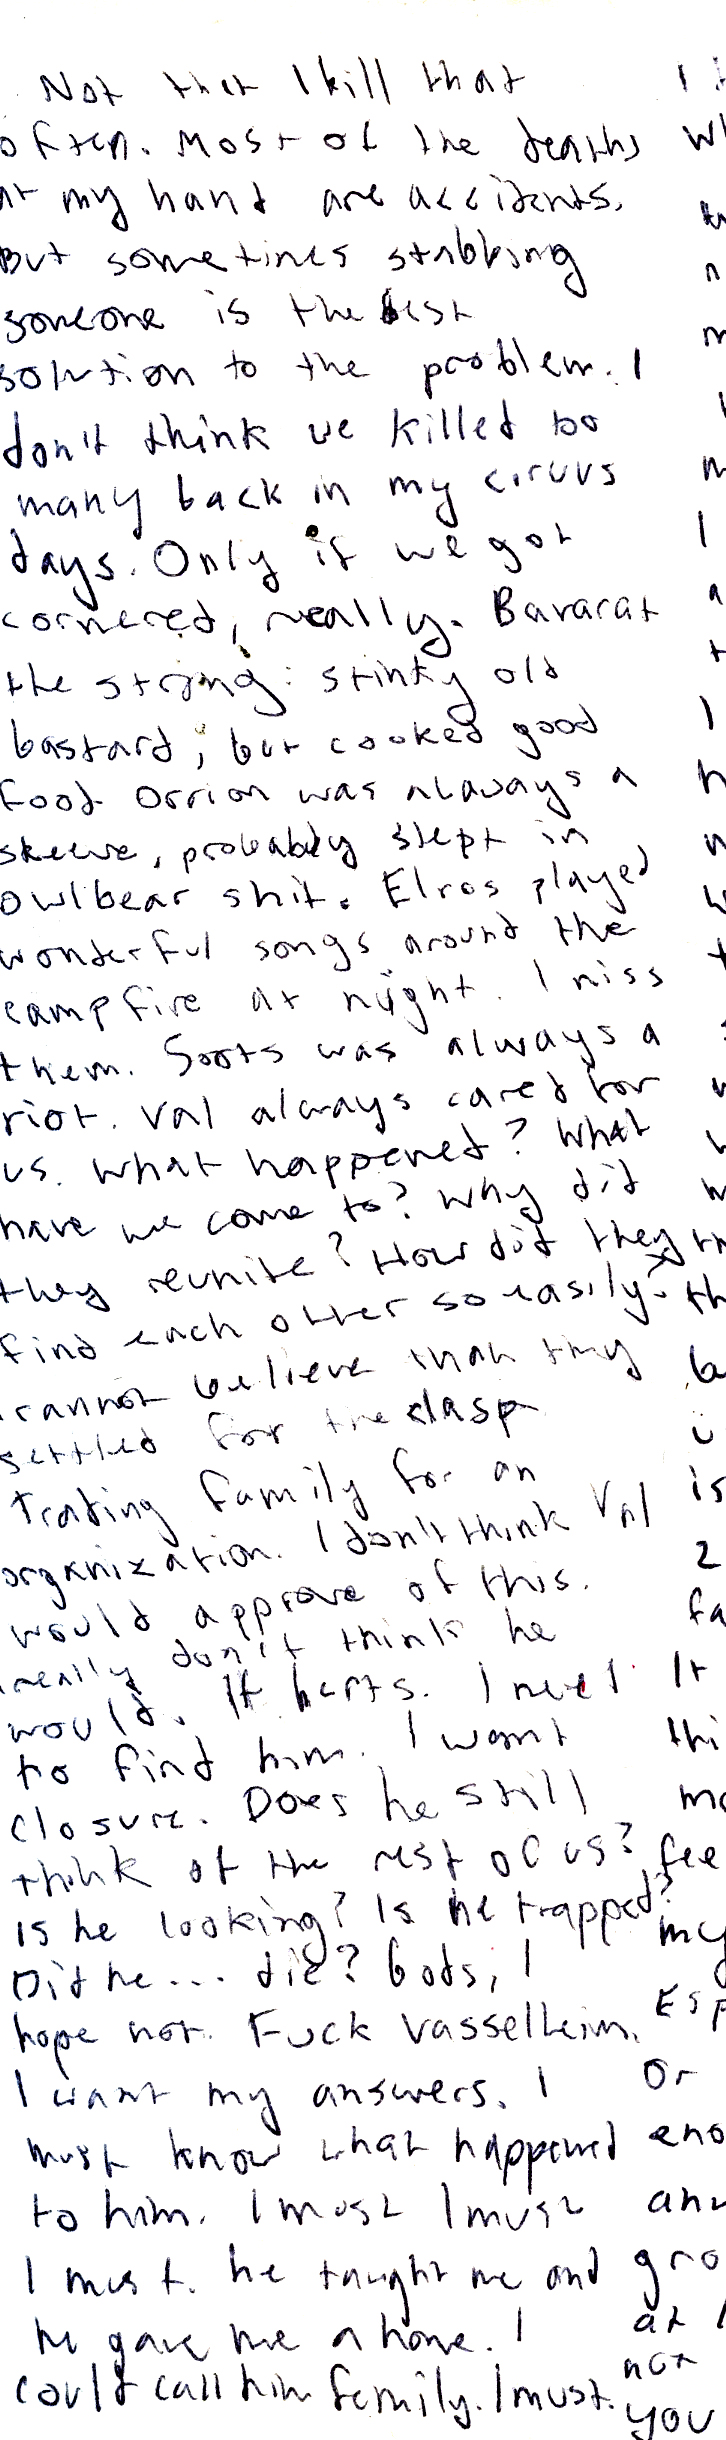 Not that I kill that
often. Most of the deaths
at my hand are accidents.
But sometimes stabbing
someone is the best
solution to the problem. I
don't think we killed too
many back in my circus
days. Only if we got
cornered, really. Bavarat
the strong: stinky old
bastard, but cooked good
food. Orrion was always a
skeeve, probably slept in
owlbear shit. Elros played
wonderful songs around the
campfire at night. I miss
them. Soots was always a
riot. Val always cared for
us. What happened? What
have we come to? Why did
they reunite? How did they
find each other so easily?
I cannot believe that they
settled for the clasp
Trading family for an
organization. I don't think Val
would approve of this. I
really don't think he
would. It hurts. I need
to find him. I want
closure. Does he still
think of the rest of us?
Is he looking? Is he trapped?
Did he... die? Gods, I
hope not. Fuck Vasselheim.
I want my answers. I
must know what happened
to him. I must I must
I must. he taught me and
he gave me a home. I
could call him family. I must.